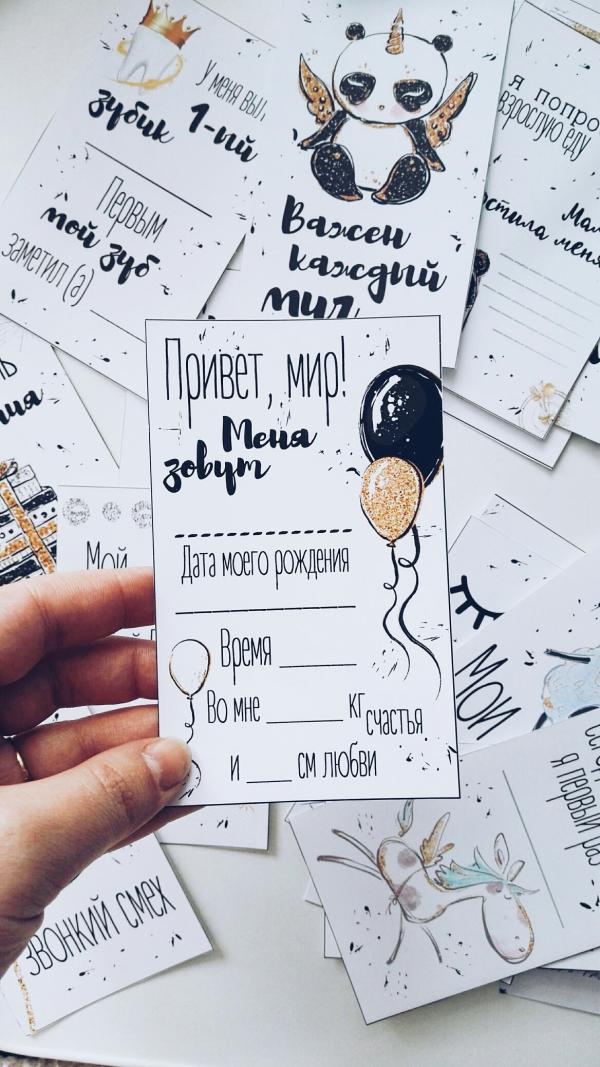 У меня
зубик 1-ый
Первым
мой зуб
заметил (а)
Важен
каждый
миг
я попро
взрослую еду
Мам
стила меня
Привет, мир!
Меня
зовут
Дата моего рождения
Время
Во мне кг счастья
и см любви
Мой
Мои
я первый раз
звонкий смех